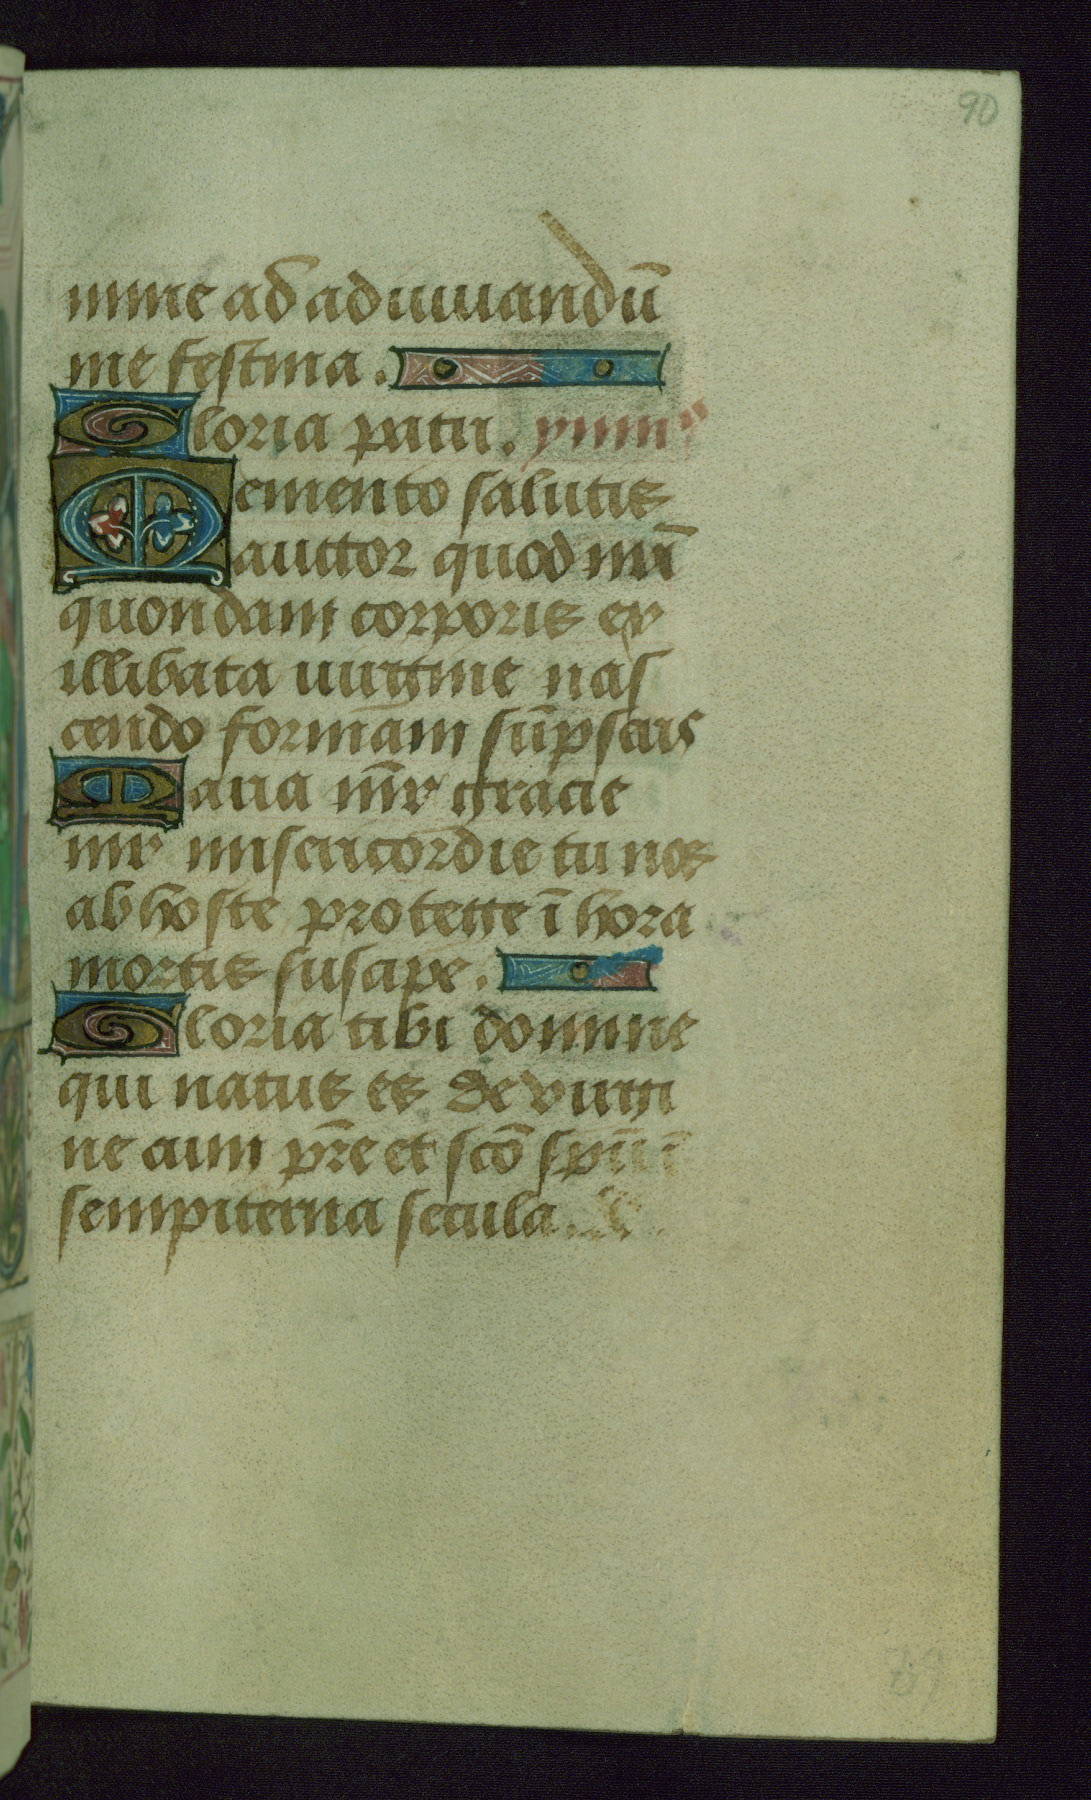 90
mine ad adiuuandū
me festina.
Gloria patri. ymn⁹
Memento salutis
auctor quod nr̄i
quondam corporis ex
illibata uirgine nas
cendo formam sūpseris
Maria mr̄ gracie
mr misericordie tu nos
ab hoste protege ī hora
mortis suscipe.
Gloria tibi domine
qui natus es de virgi
ne cum pr̄e et scō spū ī
sempiterna secula.